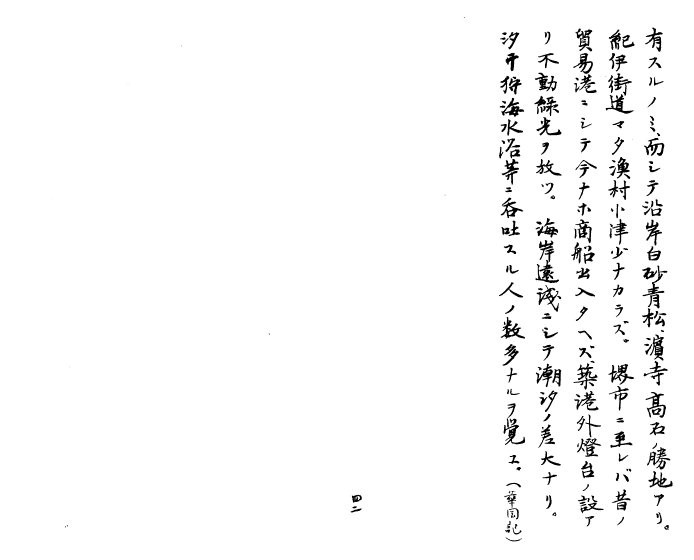 有スルノミ、而シテ沿岸白砂青松、濱寺高石ノ勝地アリ。
紀伊街道マタ漁村小津少ナカラズ。堺市ニ至レバ昔ノ
貿易港ニシテ今ナホ商船出入タヘズ、築港外燈台ノ設ア
リ不動緑光ヲ放ツ。海岸遠浅ニシテ潮汐ノ差大ナリ。
汐干狩海水浴等ニ呑吐スル人ノ数多ナルヲ覚エ。(華国記)
四二